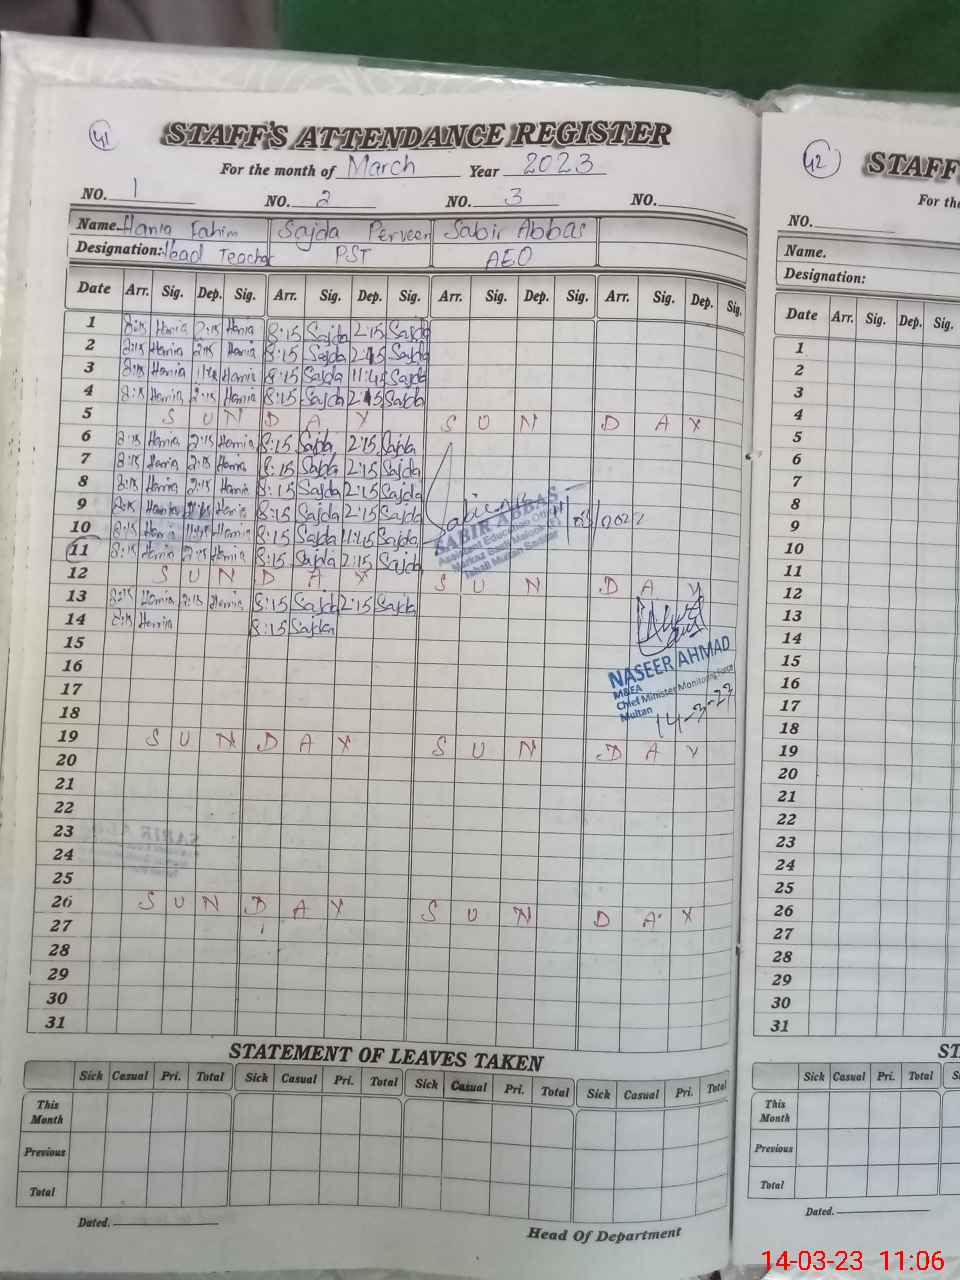 41
STAFF'S ATTENDANCE REGISTER
For the month of March Year 2023
NO. 1 NO. 2 NO. 3 NO.
Name. Hania Fahim Sajda Perveen Sabir Abbas
Designation: Head Teacher PST AEO
Date Arr. Sig. Dep. Sig. Arr. Sig. Dep. Sig. Arr. Sig. Dep. Sig. Arr. Sig. Dep. Sig.
1 8:15 Hania 2:15 Hania 8:15 Sajda 2:15 Sajda
2 8:15 Hania 2:15 Hania 8:15 Sajda 2:15 Sajda
3 8:15 Hania 11:45 Hania 8:15 Sajda 11:45 Sajda
4 8:15 Hania 2:15 Hania 8:15 Sajda 2:15 Sajda
5 S U N D A Y S U N D A Y
6 8:15 Hania 2:15 Hania 8:15 Sajda 2:15 Sajda
7 8:15 Hania 2:15 Hania 8:15 Sajda 2:15 Sajda
8 8:15 Hania 2:15 Hania 8:15 Sajda 2:15 Sajda
9 8:15 Hania 2:15 Hania 8:15 Sajda 2:15 Sajda
10 8:15 Hania 11:45 Hania 8:15 Sajda 11:45 Sajda
11 8:15 Hania 2:15 Hania 8:15 Sajda 2:15 Sajda
SABIR ABBAS
Assistant Education Officer
Tehsil Multan Saddar
12 S U N D A Y S U N D A Y
13 8:15 Hania 2:15 Hania 8:15 Sajda 2:15 Sajda
14 8:15 Hania 8:15 Sajda
15
16
NASEER AHMAD
M&EA
Chief Minister Monitoring Force
Multan
14-3-23
17
18
19 S U N D A Y S U N D A Y
20
21
22
23
24
25
26 S U N D A Y S U N D A Y
27
28
29
30
31
STATEMENT OF LEAVES TAKEN
Sick Casual Pri. Total Sick Casual Pri. Total Sick Casual Pri. Total Sick Casual Pri. Total
This Month
Previous
Total
Dated.
Head Of Department
42
STAFF
For the
NO.
Name.
Designation:
Date Arr. Sig. Dep. Sig.
1
2
3
4
5
6
7
8
9
10
11
12
13
14
15
16
17
18
19
20
21
22
23
24
25
26
27
28
29
30
31
ST
Sick Casual Pri. Total S
This Month
Previous
Total
Dated.
14-03-23 11:06